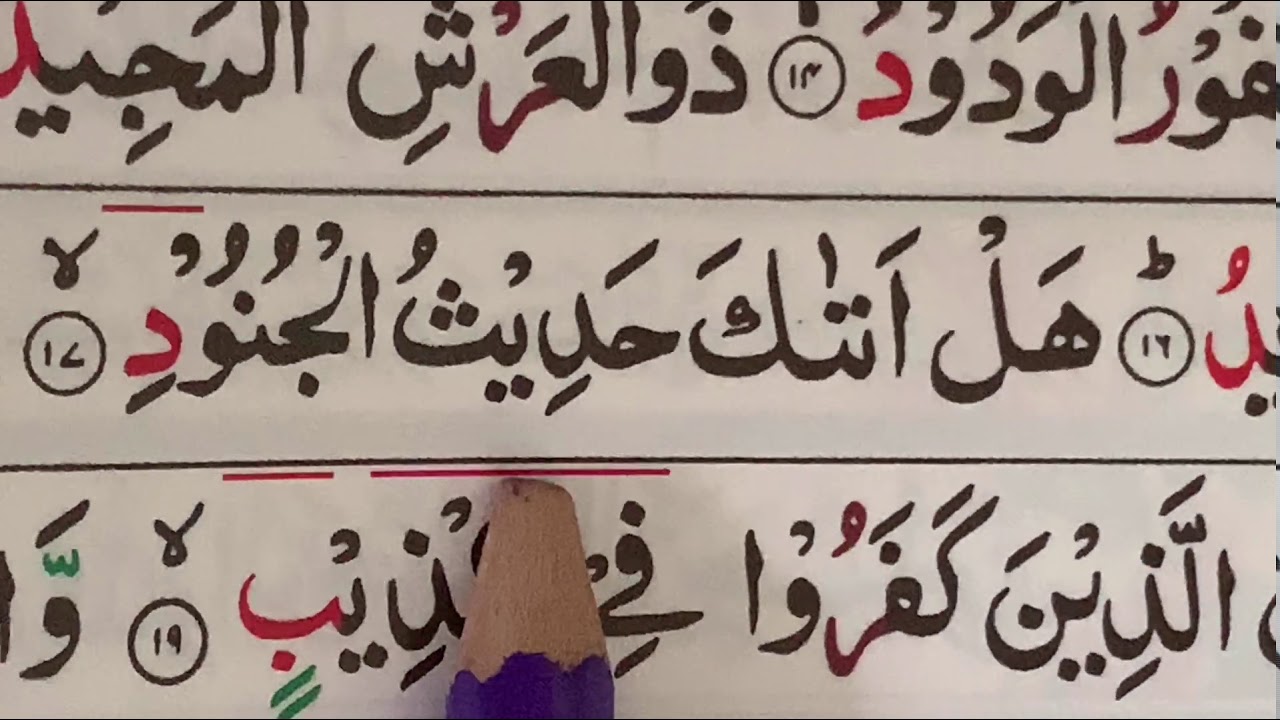 الْوَدُوْدُ ١٤ ذُو الْعَرْشِ الْمَجِيْدُ
١٦ؕ هَلْ اَتٰىكَ حَدِيْثُ الْجُنُوْدِ ١٧ۙ
الَّذِيْنَ كَفَرُوْا فِيْ ١٩ۙ